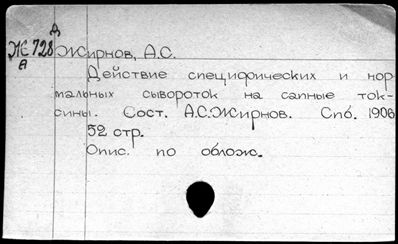 Д
Ж 728
А
Жирнов, А.С.
Действие специфических и нор-
мальных сывороток на сапные ток-
сины. Сост. А.С.Жирнов. Спб. 1906
52 стр.
Опис. по облож.